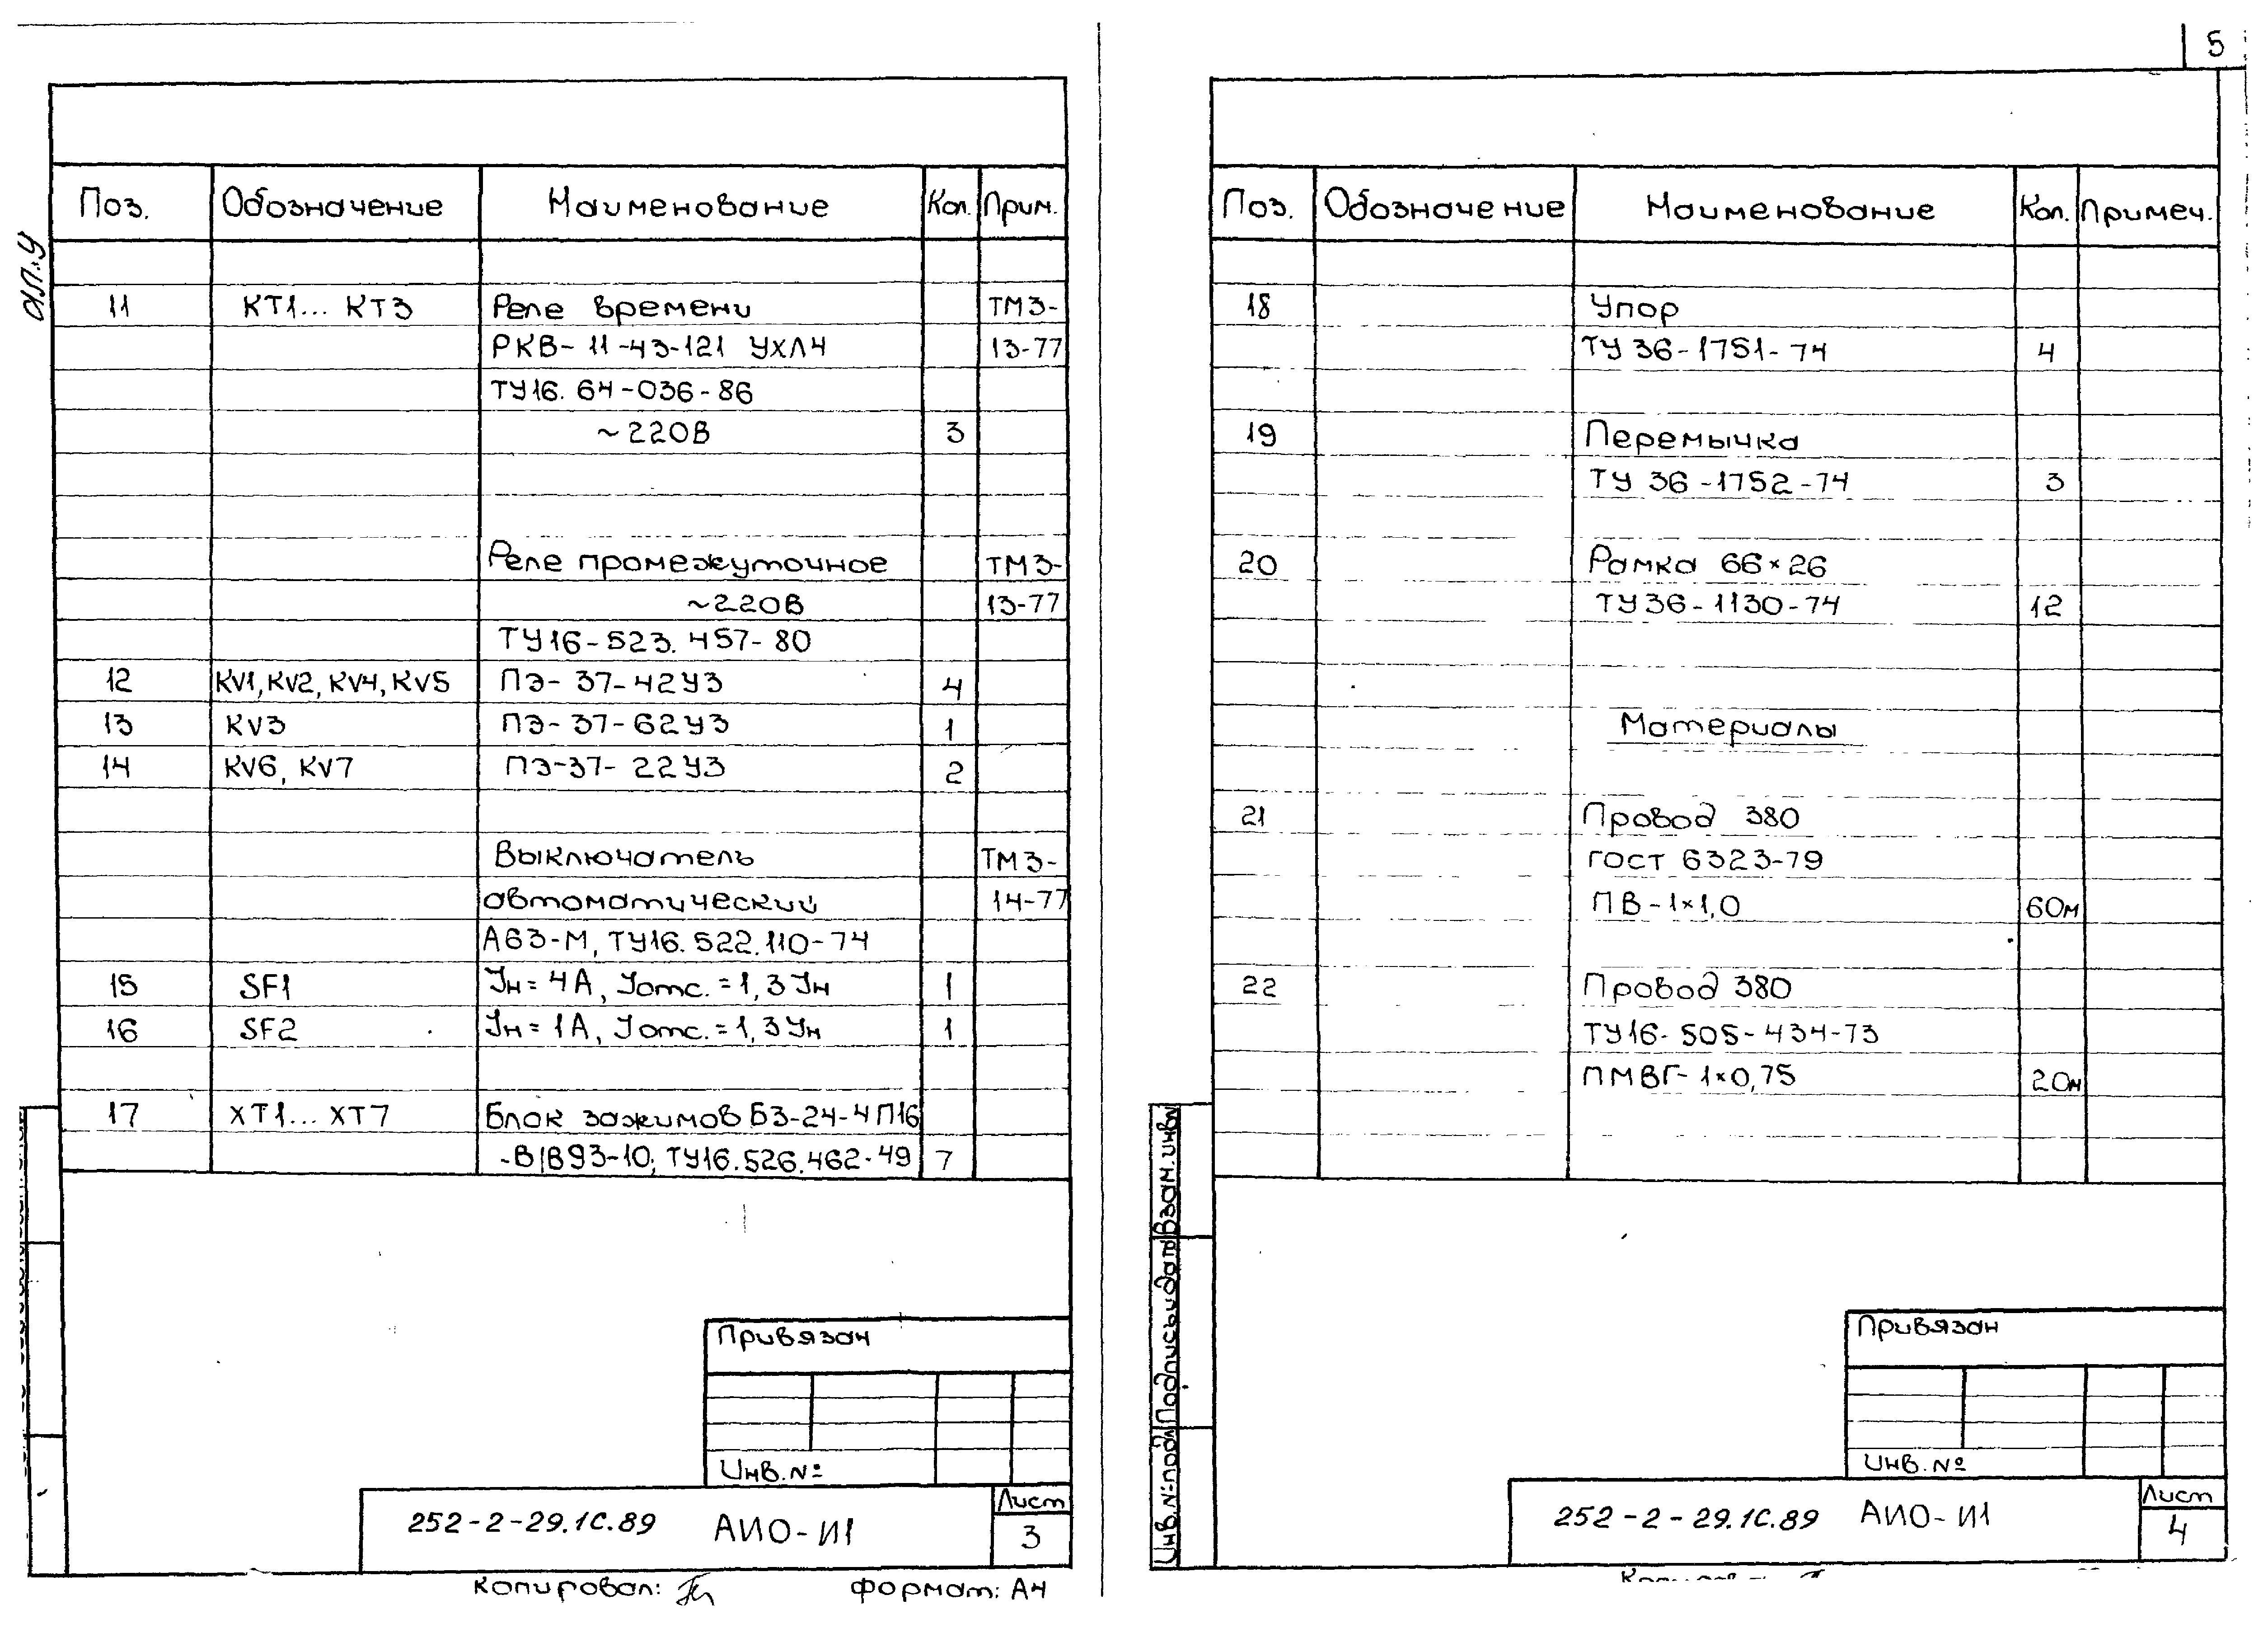 ал.У
Поз. Обозначение Наименование Кол. Прим.
11 КТ1... КТ3 Реле времени ТМ3-
РКВ-11-43-121 УХЛ4 13-77
ТУ16.64-036-86
~220В 3
Реле промежуточное ТМ3-
~220В 13-77
ТУ16-523.457-80
12 KV1, KV2, KV4, KV5 ПЭ-37-42У3 4
13 KV3 ПЭ-37-62У3 1
14 KV6, KV7 ПЭ-37-22У3 2
Выключатель ТМ3-
автоматический 14-77
А63-М, ТУ16.522.110-74
15 SF1 Jн=4А, Jотс.=1,3Jн 1
16 SF2 Jн=1А, Jотс.=1,3Jн 1
17 ХТ1... ХТ7 Блок зажимов БЗ-24-4П16
-В|В93-10; ТУ16.526.462-49 7
Привязан
Инв.№
252-2-29.1С.89 АИО-И1
Лист
3
Копировал:
формат: А4
5
Поз. Обозначение Наименование Кол. Примеч.
18 Упор
ТУ 36-1751-74 4
19 Перемычка
ТУ 36-1752-74 3
20 Рамка 66×26
ТУ36-1130-74 12
Материалы
21 Провод 380
ГОСТ 6323-79
ПВ-1×1,0 60м
22 Провод 380
ТУ16-505-434-73
ПМВГ-1×0,75 20м
Инв.№подл Подпись и дата Взам.инв.№
Привязан
Инв.№
252-2-29.1С.89 АИО-И1
Лист
4